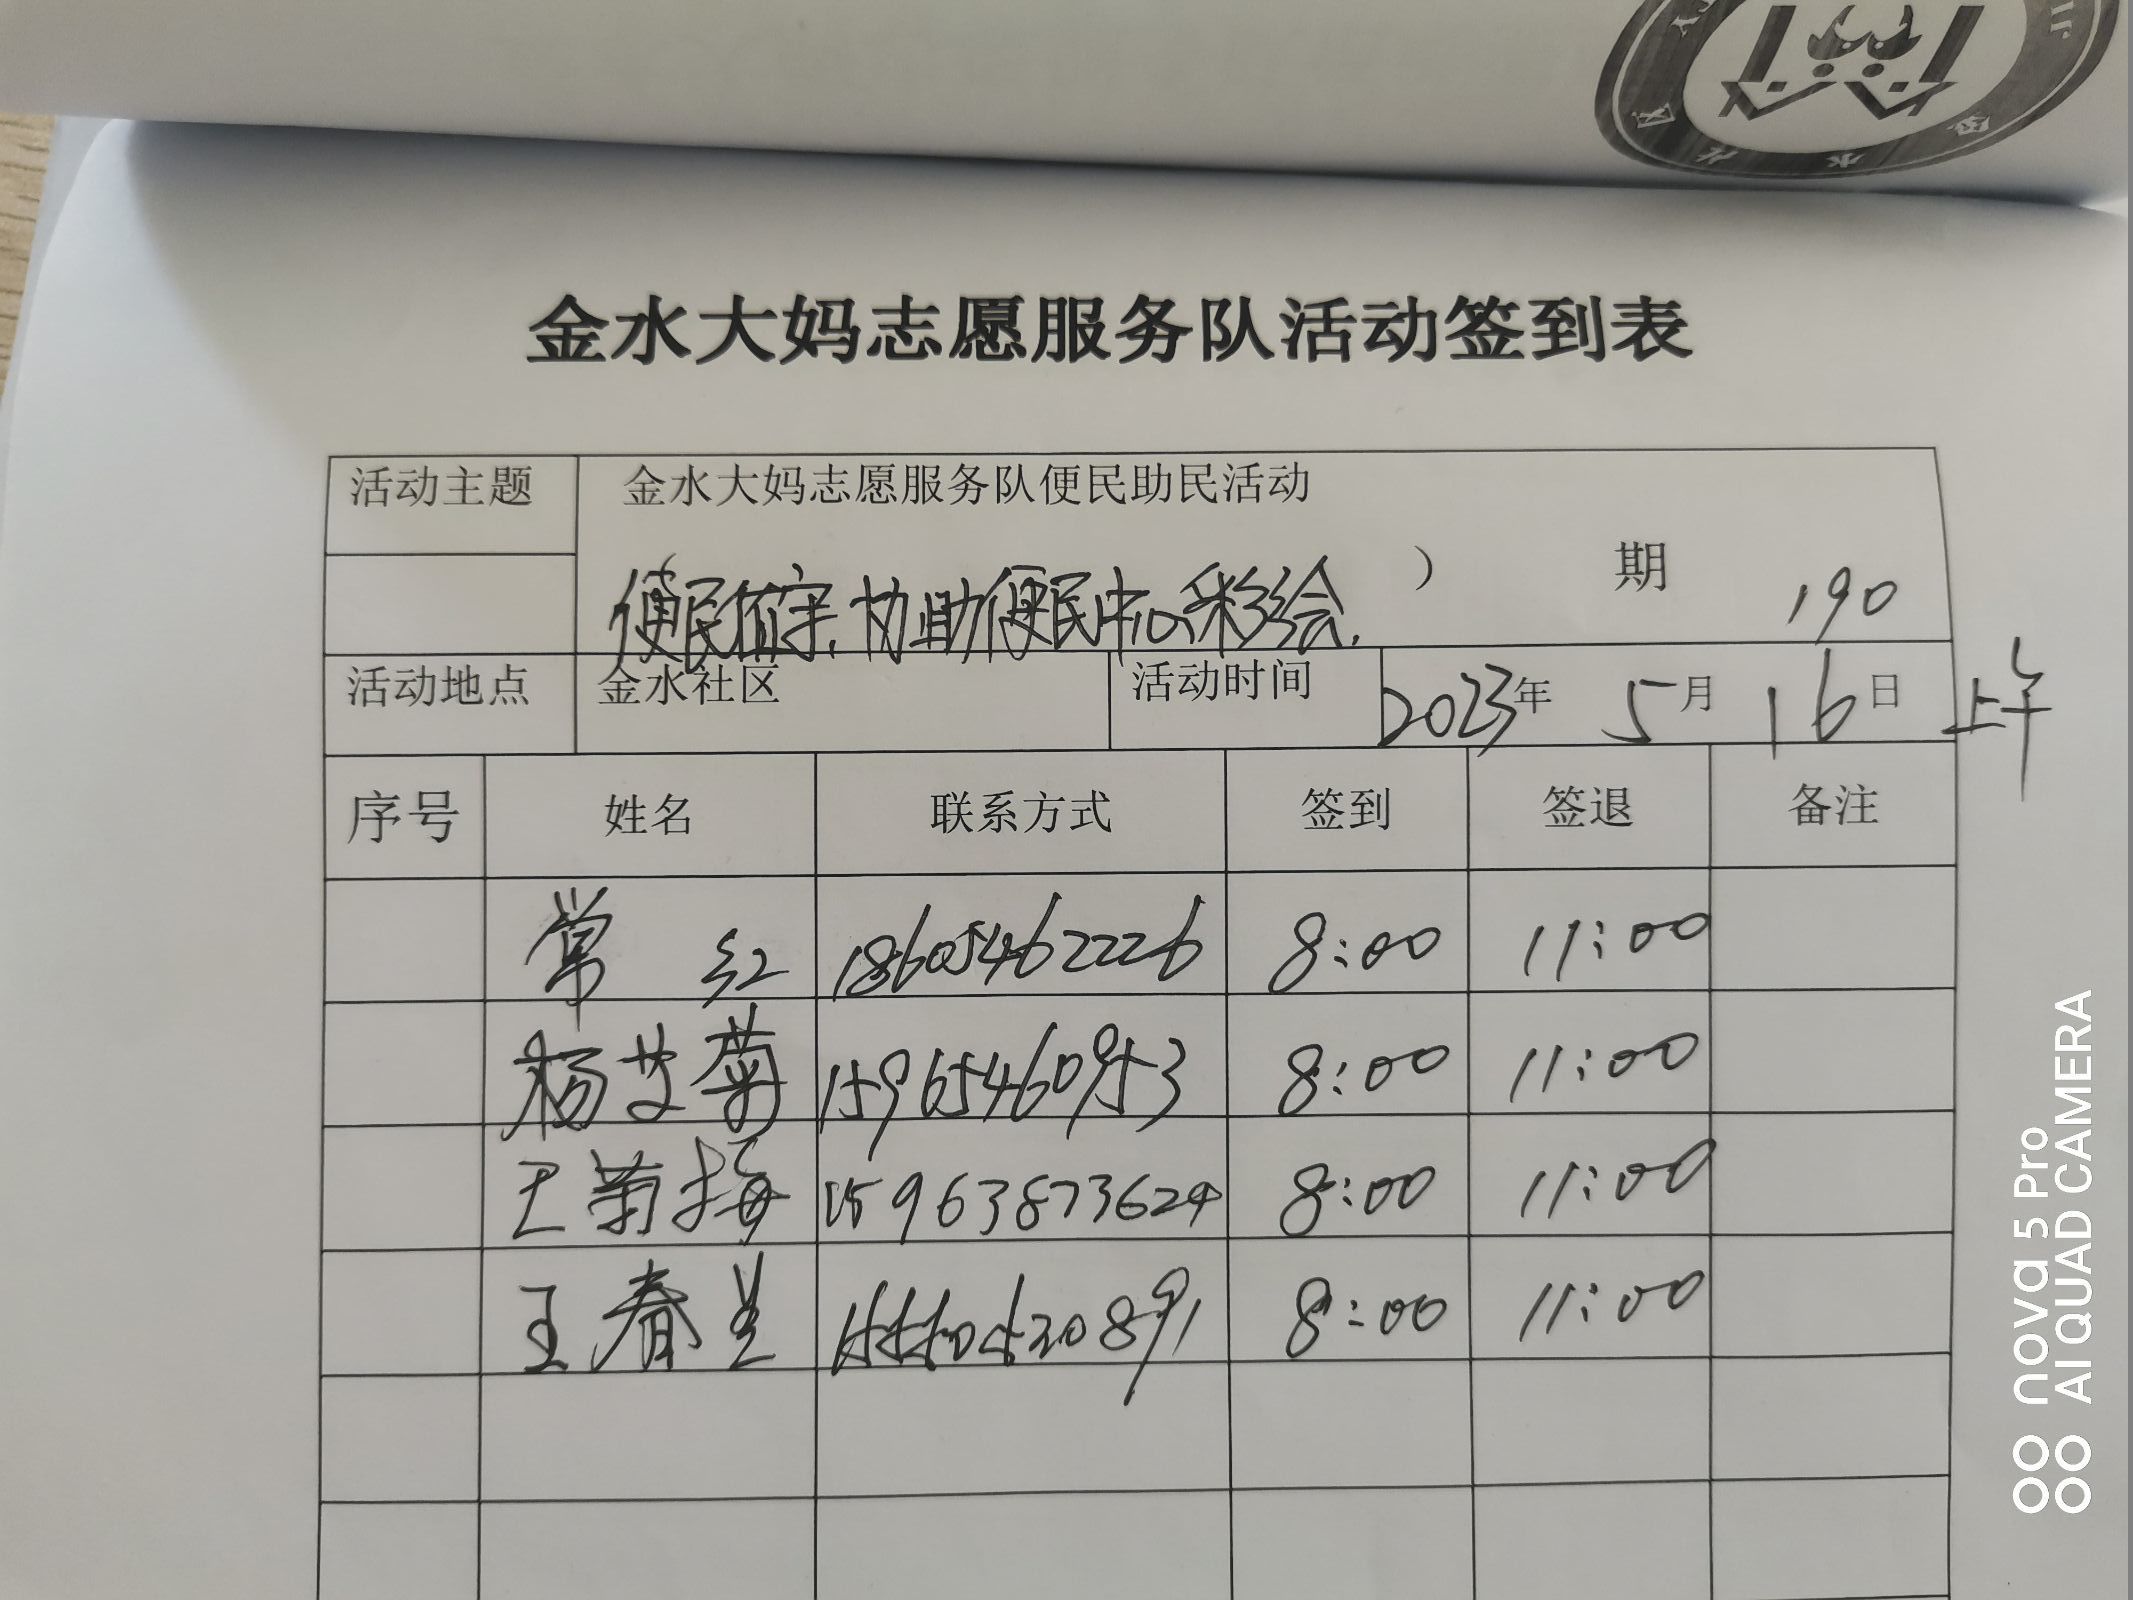 金水大妈志愿服务队活动签到表
活动主题 金水大妈志愿服务队便民助民活动
便民值守.协助便民中心彩绘. ） 期 190
活动地点 金水社区 活动时间 2023年 5月 16日 上午
序号 姓名 联系方式 签到 签退 备注
常 红 18605462226 8:00 11:00
杨艾菊 15965460953 8:00 11:00
王菊梅 15963873624 8:00 11:00
王春兰 8:00 11:00
nova 5 Pro
AI QUAD CAMERA